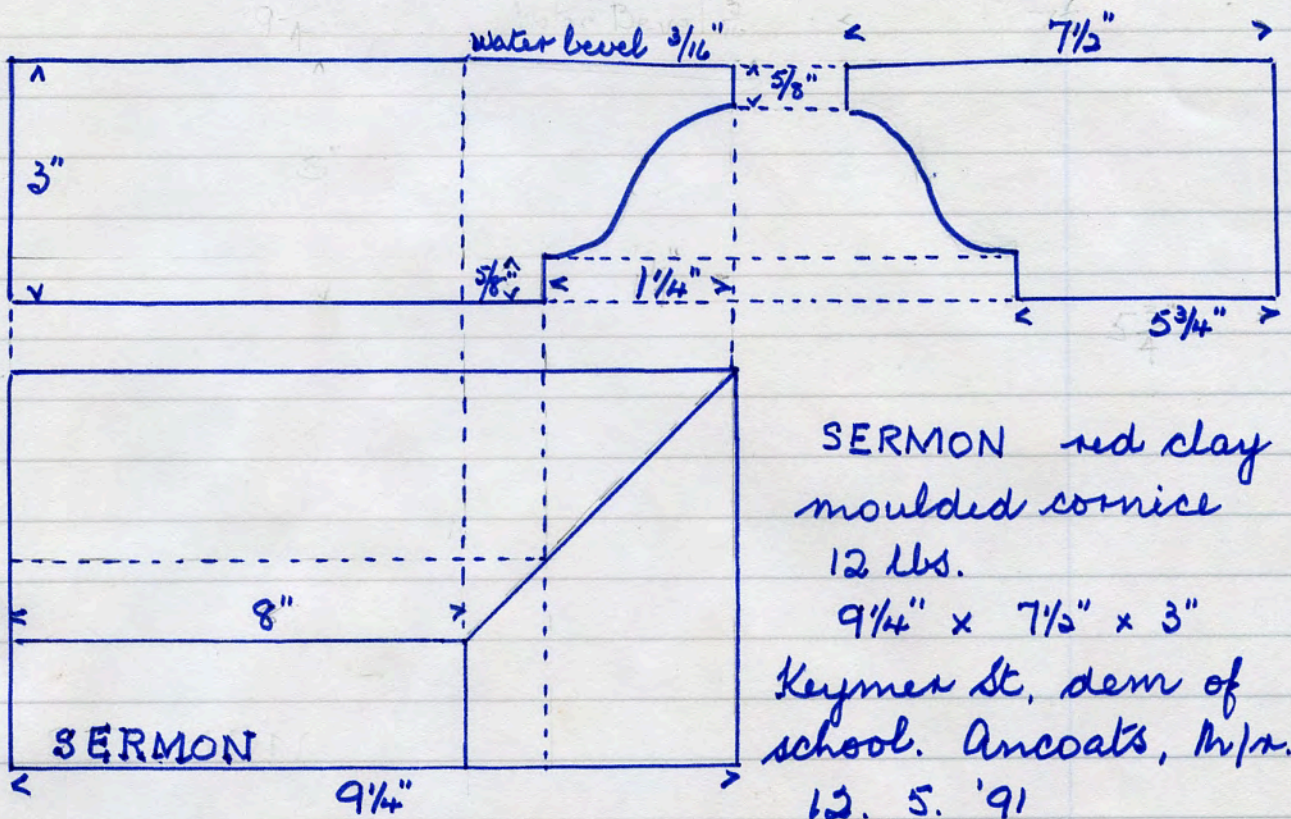 Water bevel 3/16"
7 1/2"
5/8"
3"
5/8"
1 1/4"
5 3/4"
8"
SERMON
9 1/4"
SERMON red clay
moulded cornice
12 lbs.
9 1/4" x 7 1/2" x 3"
Keymer St, dem of
school. Ancoats, M/r.
12. 5. '91